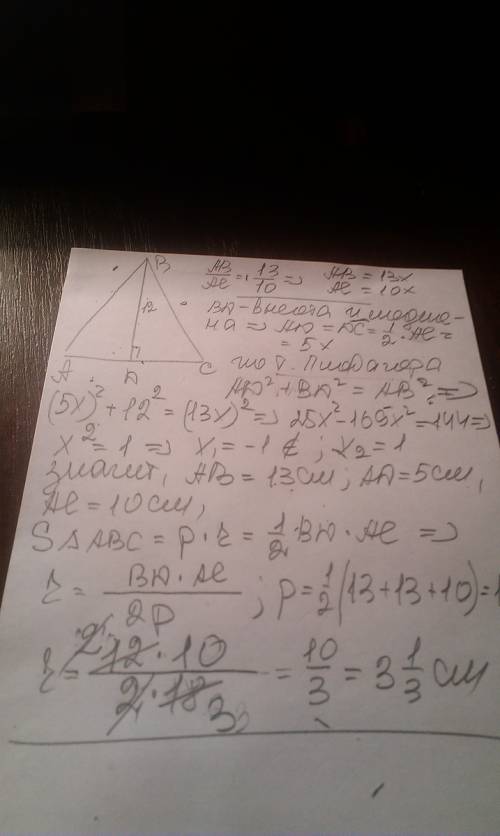 B
12
A Д C
AB/AC = 13/10 => AB = 13x
AC = 10x
BД - высота и медиа-
на => AД = ДC = 1/2 · AC =
= 5x
по т. Пифагора
AД² + BД² = AB² =>
(5x)² + 12² = (13x)² => 25x² - 169x² = -144 =>
x² = 1 => x₁ = -1 ∉ ; x₂ = 1
значит, AB = 13 см; AД = 5 см,
AC = 10 см,
S △ ABC = p · r = 1/2 BД · AC =>
r = BД · AC / 2p ; p = 1/2 (13 + 13 + 10) = 1
r = 12 · 10 / 2 · 18 = 10/3 = 3 1/3 см